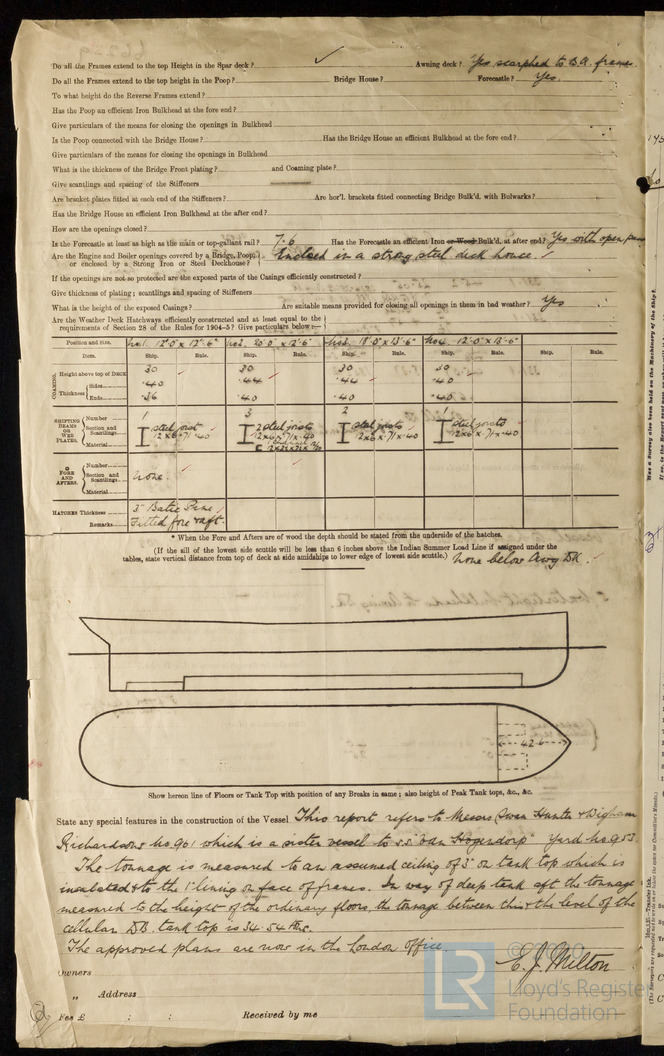 Do all the Frames extend to the top Height in the Spar deck? ✓ Awning deck? Yes scarphed to B.A. frames
Do all the Frames extend to the top height in the Poop? Bridge House? Forecastle? Yes.
To what height do the Reverse Frames extend?
Has the Poop an efficient Iron Bulkhead at the fore end?
Give particulars of the means for closing the openings in Bulkhead
Is the Poop connected with the Bridge House? Has the Bridge House an efficient Bulkhead at the fore end?
Give particulars of the means for closing the openings in Bulkhead
What is the thickness of the Bridge Front plating? and Coaming plate?
Give scantlings and spacing of the Stiffeners
Are bracket plates fitted at each end of the Stiffeners? Are hor'l. brackets fitted connecting Bridge Bulk'd. with Bulwarks?
Has the Bridge House an efficient Iron Bulkhead at the after end?
How are the openings closed?
Is the Forecastle at least as high as the main or top-gallant rail? 7.6 Has the Forecastle an efficient Iron or Wood Bulk'd, at after end? Yes with open
Are the Engine and Boiler openings covered by a Bridge, Poop, or enclosed by a Strong Iron or Steel Deckhouse? Enclosed in a strong steel deck house. ✓
If the openings are not so protected are the exposed parts of the Casings efficiently constructed?
Give thickness of plating; scantlings and spacing of Stiffeners
What is the height of the exposed Casings? Are suitable means provided for closing all openings in them in bad weather? Yes
Are the Weather Deck Hatchways efficiently constructed and at least equal to the
requirements of Section 28 of the Rules for 1904-5? Give particulars below:—
Position and size. No1. 12'.0" x 12'.6" No2. 20'.0" x 12'.6" No3. 18'.0" x 13'.6" No4. 12'.0" x 13'.6"
Item. Ship. Rule. Ship. Rule. Ship. Rule. Ship. Rule. Ship. Rule.
COAMING.
Height above top of DECK 30 30 30 30
Thickness Sides .40 .44 .44 .40
Ends .36 .40 .40 .40
SHIFTING BEAMS OR WEB PLATES.
Number 1 3 2 1
Section and Scantlings steel joist 12x6x.71x.40 2 steel joists 12x6x.71x.40 steel joists 12x6x.71x.40 steel joists 12x6x.71x.40
Material
* FORE AND AFTERS.
Number
Section and Scantlings none.
Material
HATCHES Thickness 3" Baltic Pine
Remarks Fitted fore & aft.
* When the Fore and Afters are of wood the depth should be stated from the underside of the hatches.
(If the sill of the lowest side scuttle will be less than 6 inches above the Indian Summer Load Line if assigned under the
tables, state vertical distance from top of deck at side amidships to lower edge of lowest side scuttle.) None below Awg Dk.
42.6
Show hereon line of Floors or Tank Top with position of any Breaks in same; also height of Peak Tank tops, &c., &c.
State any special features in the construction of the Vessel This report refers to Messrs Swan Hunter & Wigham
Richardsons No 961 which is a sister vessel to s.s. "Van Hogendorp" Yard No 953
The tonnage is measured to an assumed ceiling of 3" on tank top which is
insulated & to the 1" lining on face of frames. In way of deep tank aft the tonnage
measured to the height of the ordinary floors, the tonnage between this & the level of the
cellular DB. tank top is 34.54 tons.
The approved plans are now in the London Office.
E. J. Milton
Owners
" Address
Fee £ : : Received by me
LR
Lloyd's Register
Foundation
Was a Survey also been held on the Machinery of the Ship?